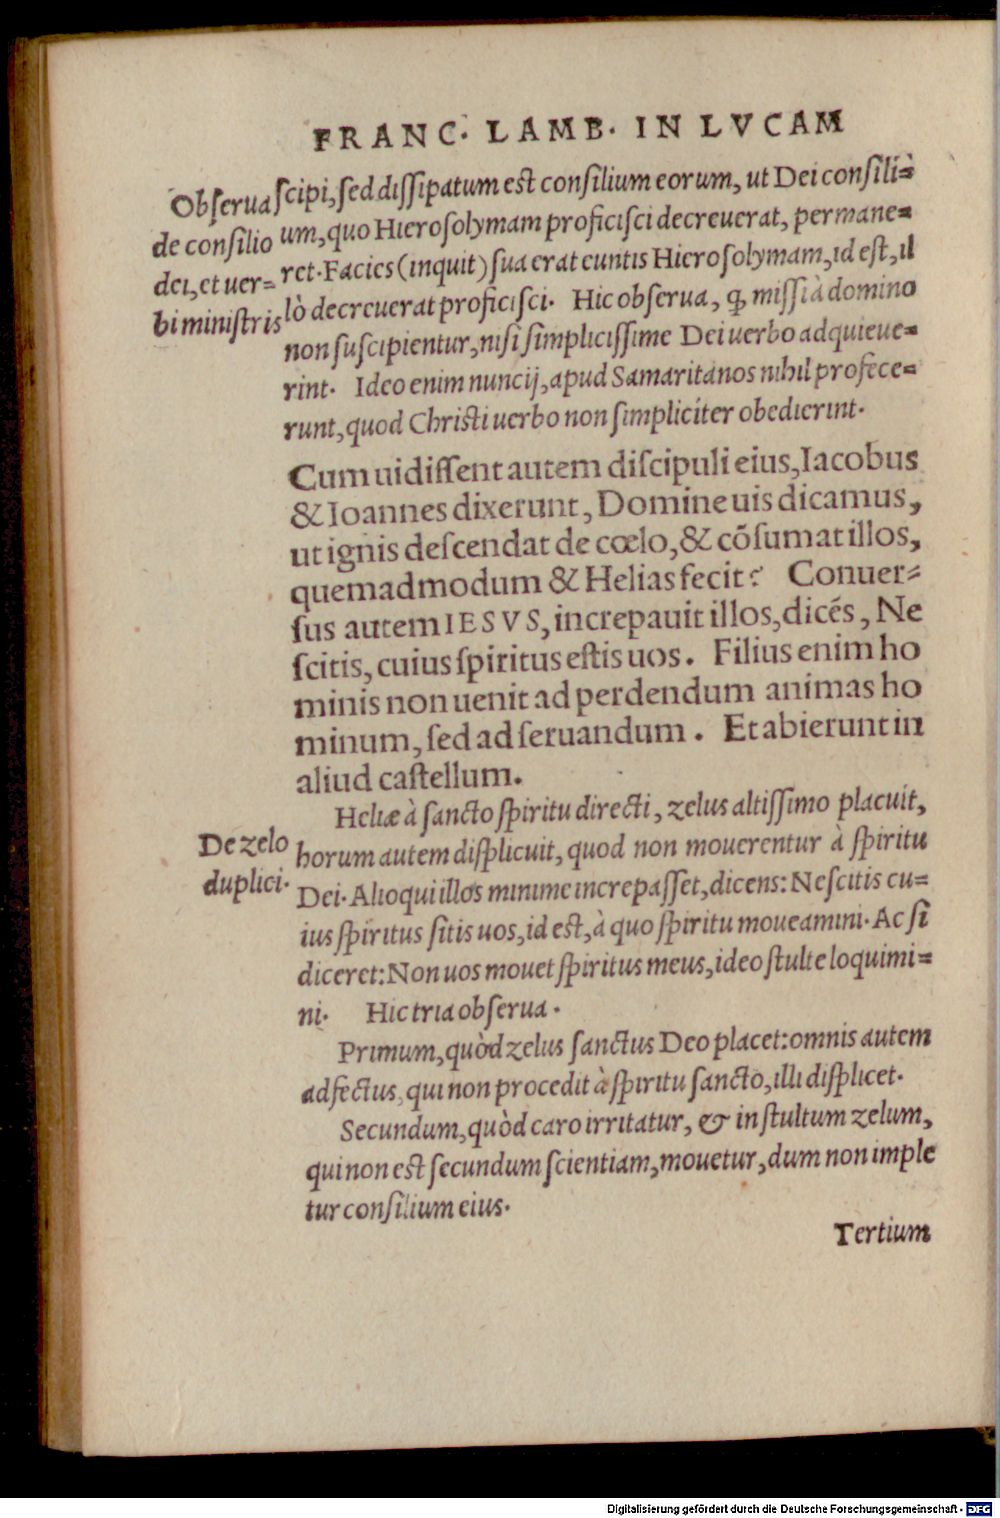 FRANC. LAMB. IN LVCAM
Obſerua
de conſilio
dei, et uer-
bi miniſtris
ſcipi, ſed diſſipatum eſt conſilium eorum, ut Dei conſili-
um, quo Hieroſolymam proficiſci decreuerat, permane-
ret. Facies (inquit) ſua erat euntis Hieroſolymam, id eſt, il
lò decreuerat proficiſci. Hic obſerua, ꝙ miſſi à domino
non ſuſcipientur, niſi ſimpliciſſime Dei uerbo adquieue-
rint. Ideo enim nuncij, apud Samaritanos nihil profece-
runt, quod Chriſti uerbo non ſimpliciter obedierint.
Cum uidiſſent autem diſcipuli eius, Iacobus
& Ioannes dixerunt, Domine uis dicamus,
ut ignis deſcendat de cœlo, & cõſumat illos,
quemadmodum & Helias fecit? Conuer-
ſus autem IESVS, increpauit illos, dicẽs, Ne
ſcitis, cuius ſpiritus eſtis uos. Filius enim ho
minis non uenit ad perdendum animas ho
minum, ſed ad ſeruandum. Et abierunt in
aliud caſtellum.
De zelo
duplici.
Heliæ à ſancto ſpiritu directi, zelus altiſſimo placuit,
horum autem diſplicuit, quod non mouerentur à ſpiritu
Dei. Alioqui illos minime increpaſſet, dicens: Neſcitis cu-
ius ſpiritus ſitis uos, id eſt, à quo ſpiritu moueamini. Ac ſi
diceret: Non uos mouet ſpiritus meus, ideo ſtulte loquimi-
ni. Hic tria obſerua.
Primum, quòd zelus ſanctus Deo placet: omnis autem
adfectus, qui non procedit à ſpiritu ſancto, illi diſplicet.
Secundum, quòd caro irritatur, & in ſtultum zelum,
qui non eſt ſecundum ſcientiam, mouetur, dum non imple
tur conſilium eius.
Tertium
Digitalisierung gefördert durch die Deutsche Forschungsgemeinschaft - DFG